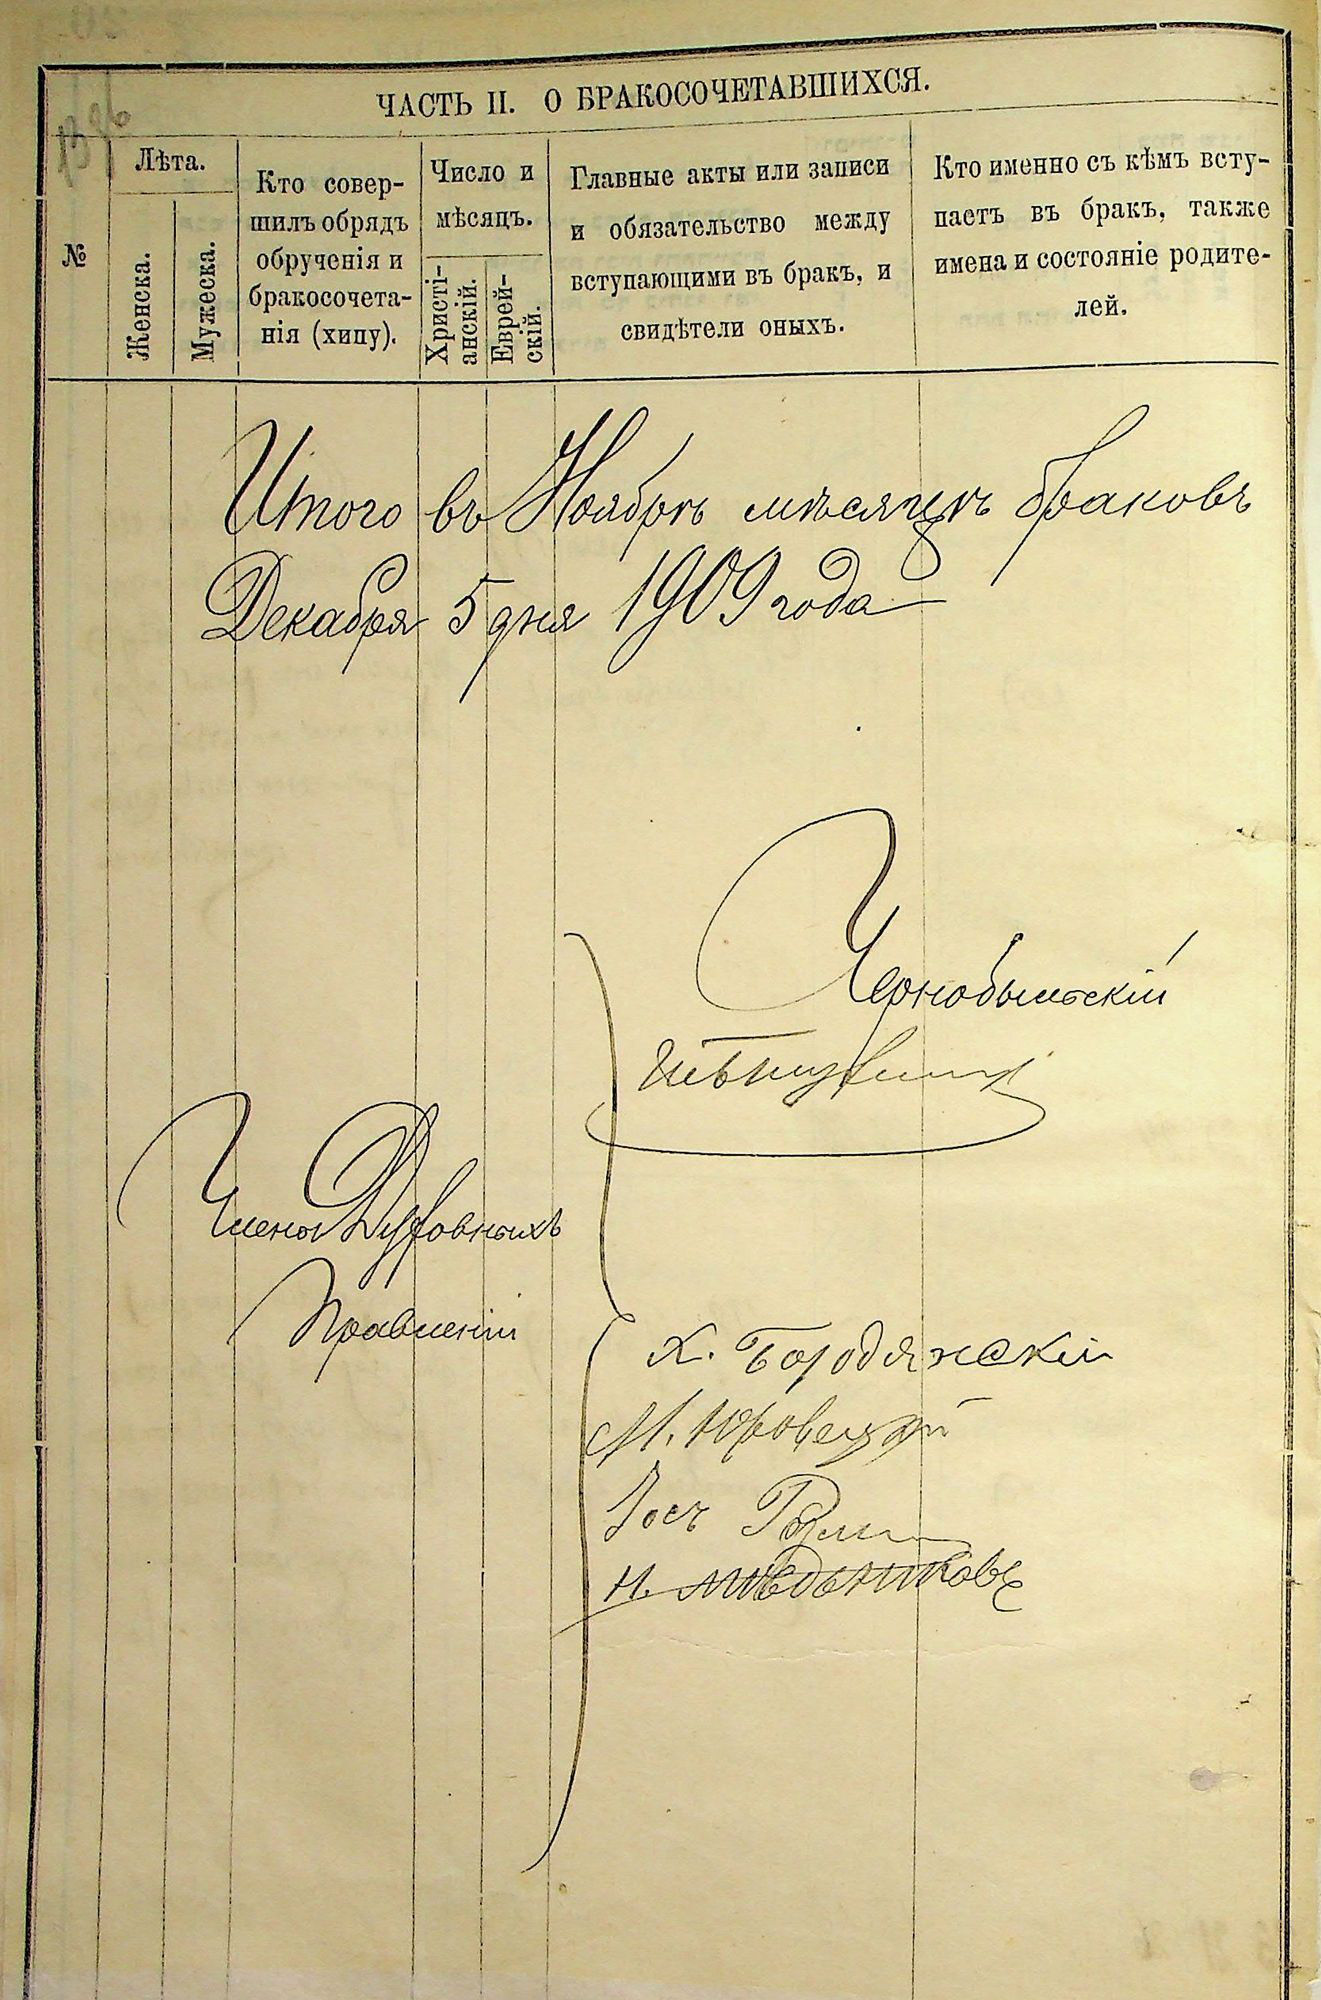 ЧАСТЬ II. О БРАКОСОЧЕТАВШИХСЯ.
№
Лѣта.
Женска.
Мужеска.
Кто совер-
шилъ обрядъ
обрученія и
бракосочета-
нія (хипу).
Число и
мѣсяцъ.
Христі-
анскій.
Еврей-
скій.
Главные акты или записи
и обязательство между
вступающими въ бракъ, и
свидѣтели оныхъ.
Кто именно съ кѣмъ всту-
паетъ въ бракъ, также
имена и состояніе родите-
лей.
Итого въ Ноябрѣ мѣсяцѣ браковъ
Декабря 5 дня 1909 года
Чернобыльскій
Члены Духовныхъ
Правленій
Х. Бородянскій
М. Юровецкій
Іос
Н. Мѣдниковъ